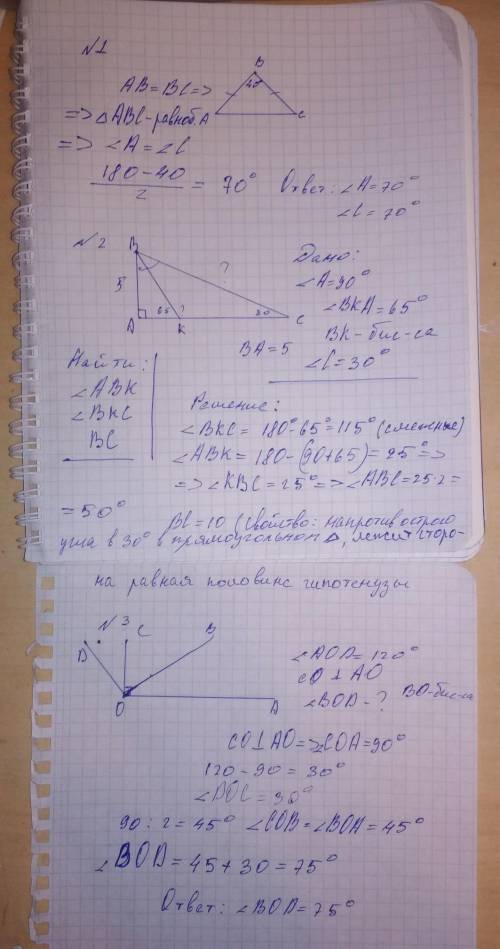 №1
B
40°
AB=BC=>
=> △ABC-равноб.
A
C
=> ∠A=∠C
180-40
2
= 70°
Ответ: ∠A=70°
∠C=70°
№2
B
5
?
65
?
30°
A
K
C
Дано:
∠A=90°
∠BKA=65°
BK-бис-са
BA=5
∠C=30°
Найти:
∠ABK
∠BKC
BC
Решение:
∠BKC= 180°-65°=115° (смежные)
∠ABK= 180-(90+65)=25°=>
=> ∠KBC=25°=> ∠ABC=25·2=
=50°
BC=10 (Свойство: напротив острого
угла в 30° в прямоугольном △, лежит сторо-
на равная половине гипотенузы
№3
D
C
B
O
A
∠AOD=120°
CO⊥AO
∠BOD-?
BO-бис-са
CO⊥AO=>∠COA=90°
120-90=30°
∠DOC=30°
90:2=45° ∠COB=∠BOA=45°
∠BOD=45+30=75°
Ответ: ∠BOD=75°